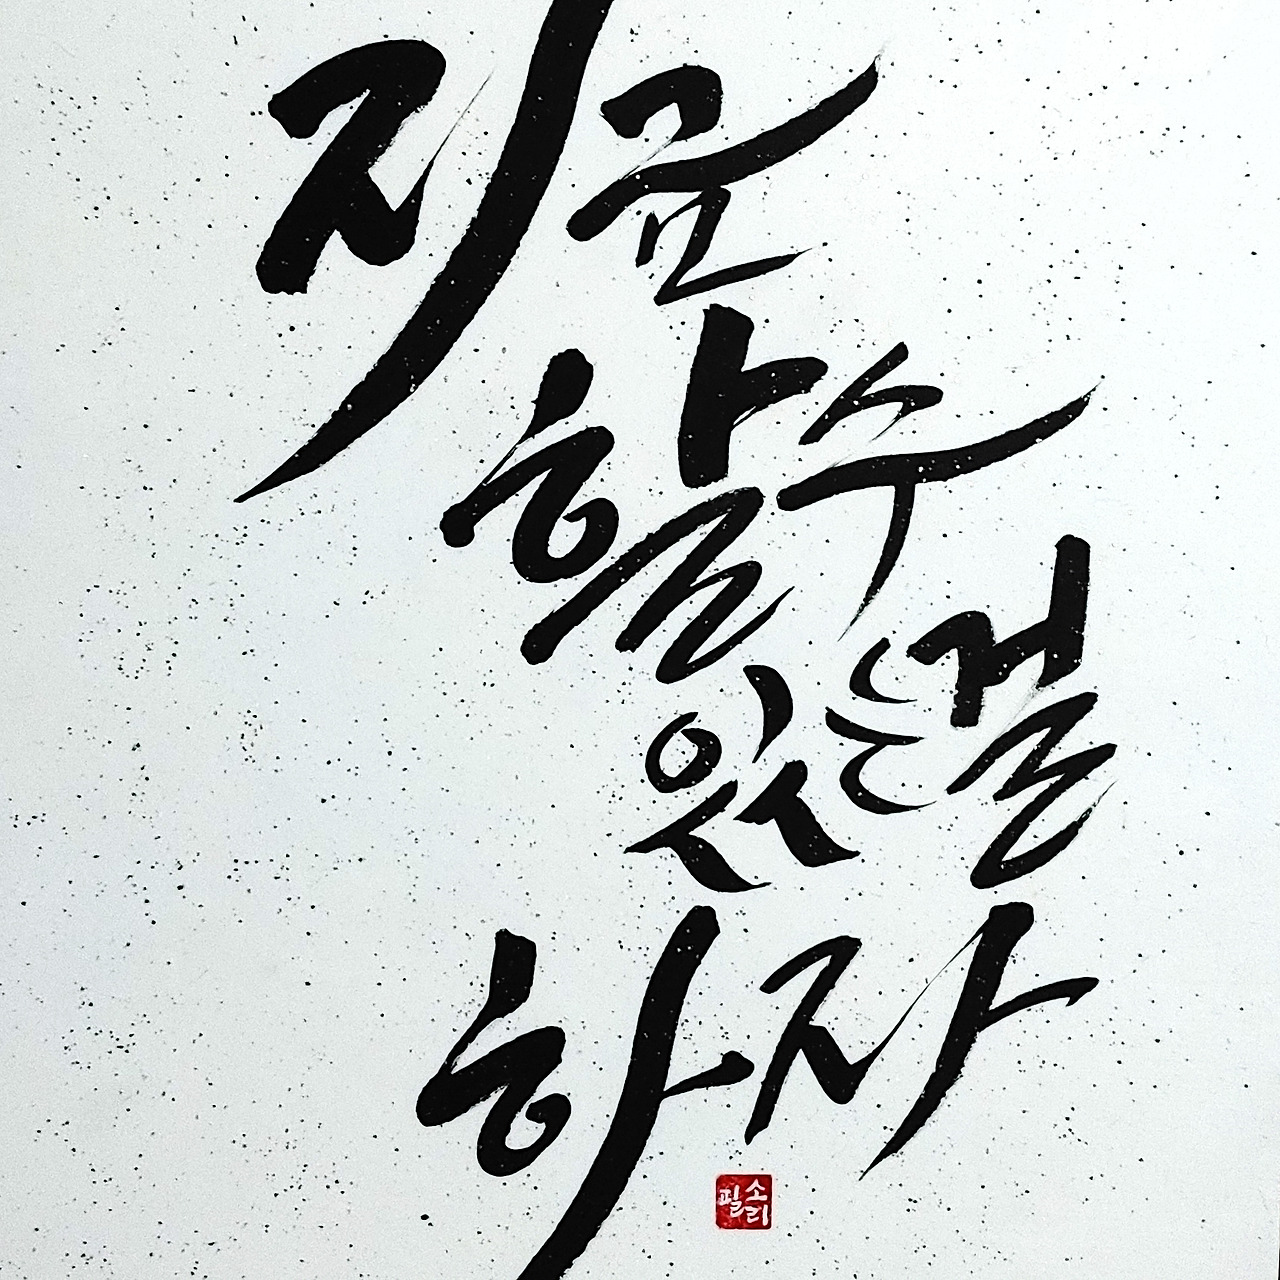 지금
할 수
있는 걸
하자
필소리